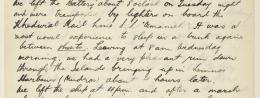 We left the Battery about 8 oclock on Tuesday night
and were transported by lighter on board the
Khedivial Mail Line S.S. "Ermine". It was a
most novel experience to sleep in a bunk again
between sheets. Leaving at 8 am Wednesday
morning, we had a very pleasant run down
through the Islands bringing up in
Harbour (Mudros) about 2 hours later.
We left the ship at 11pm. and after a march